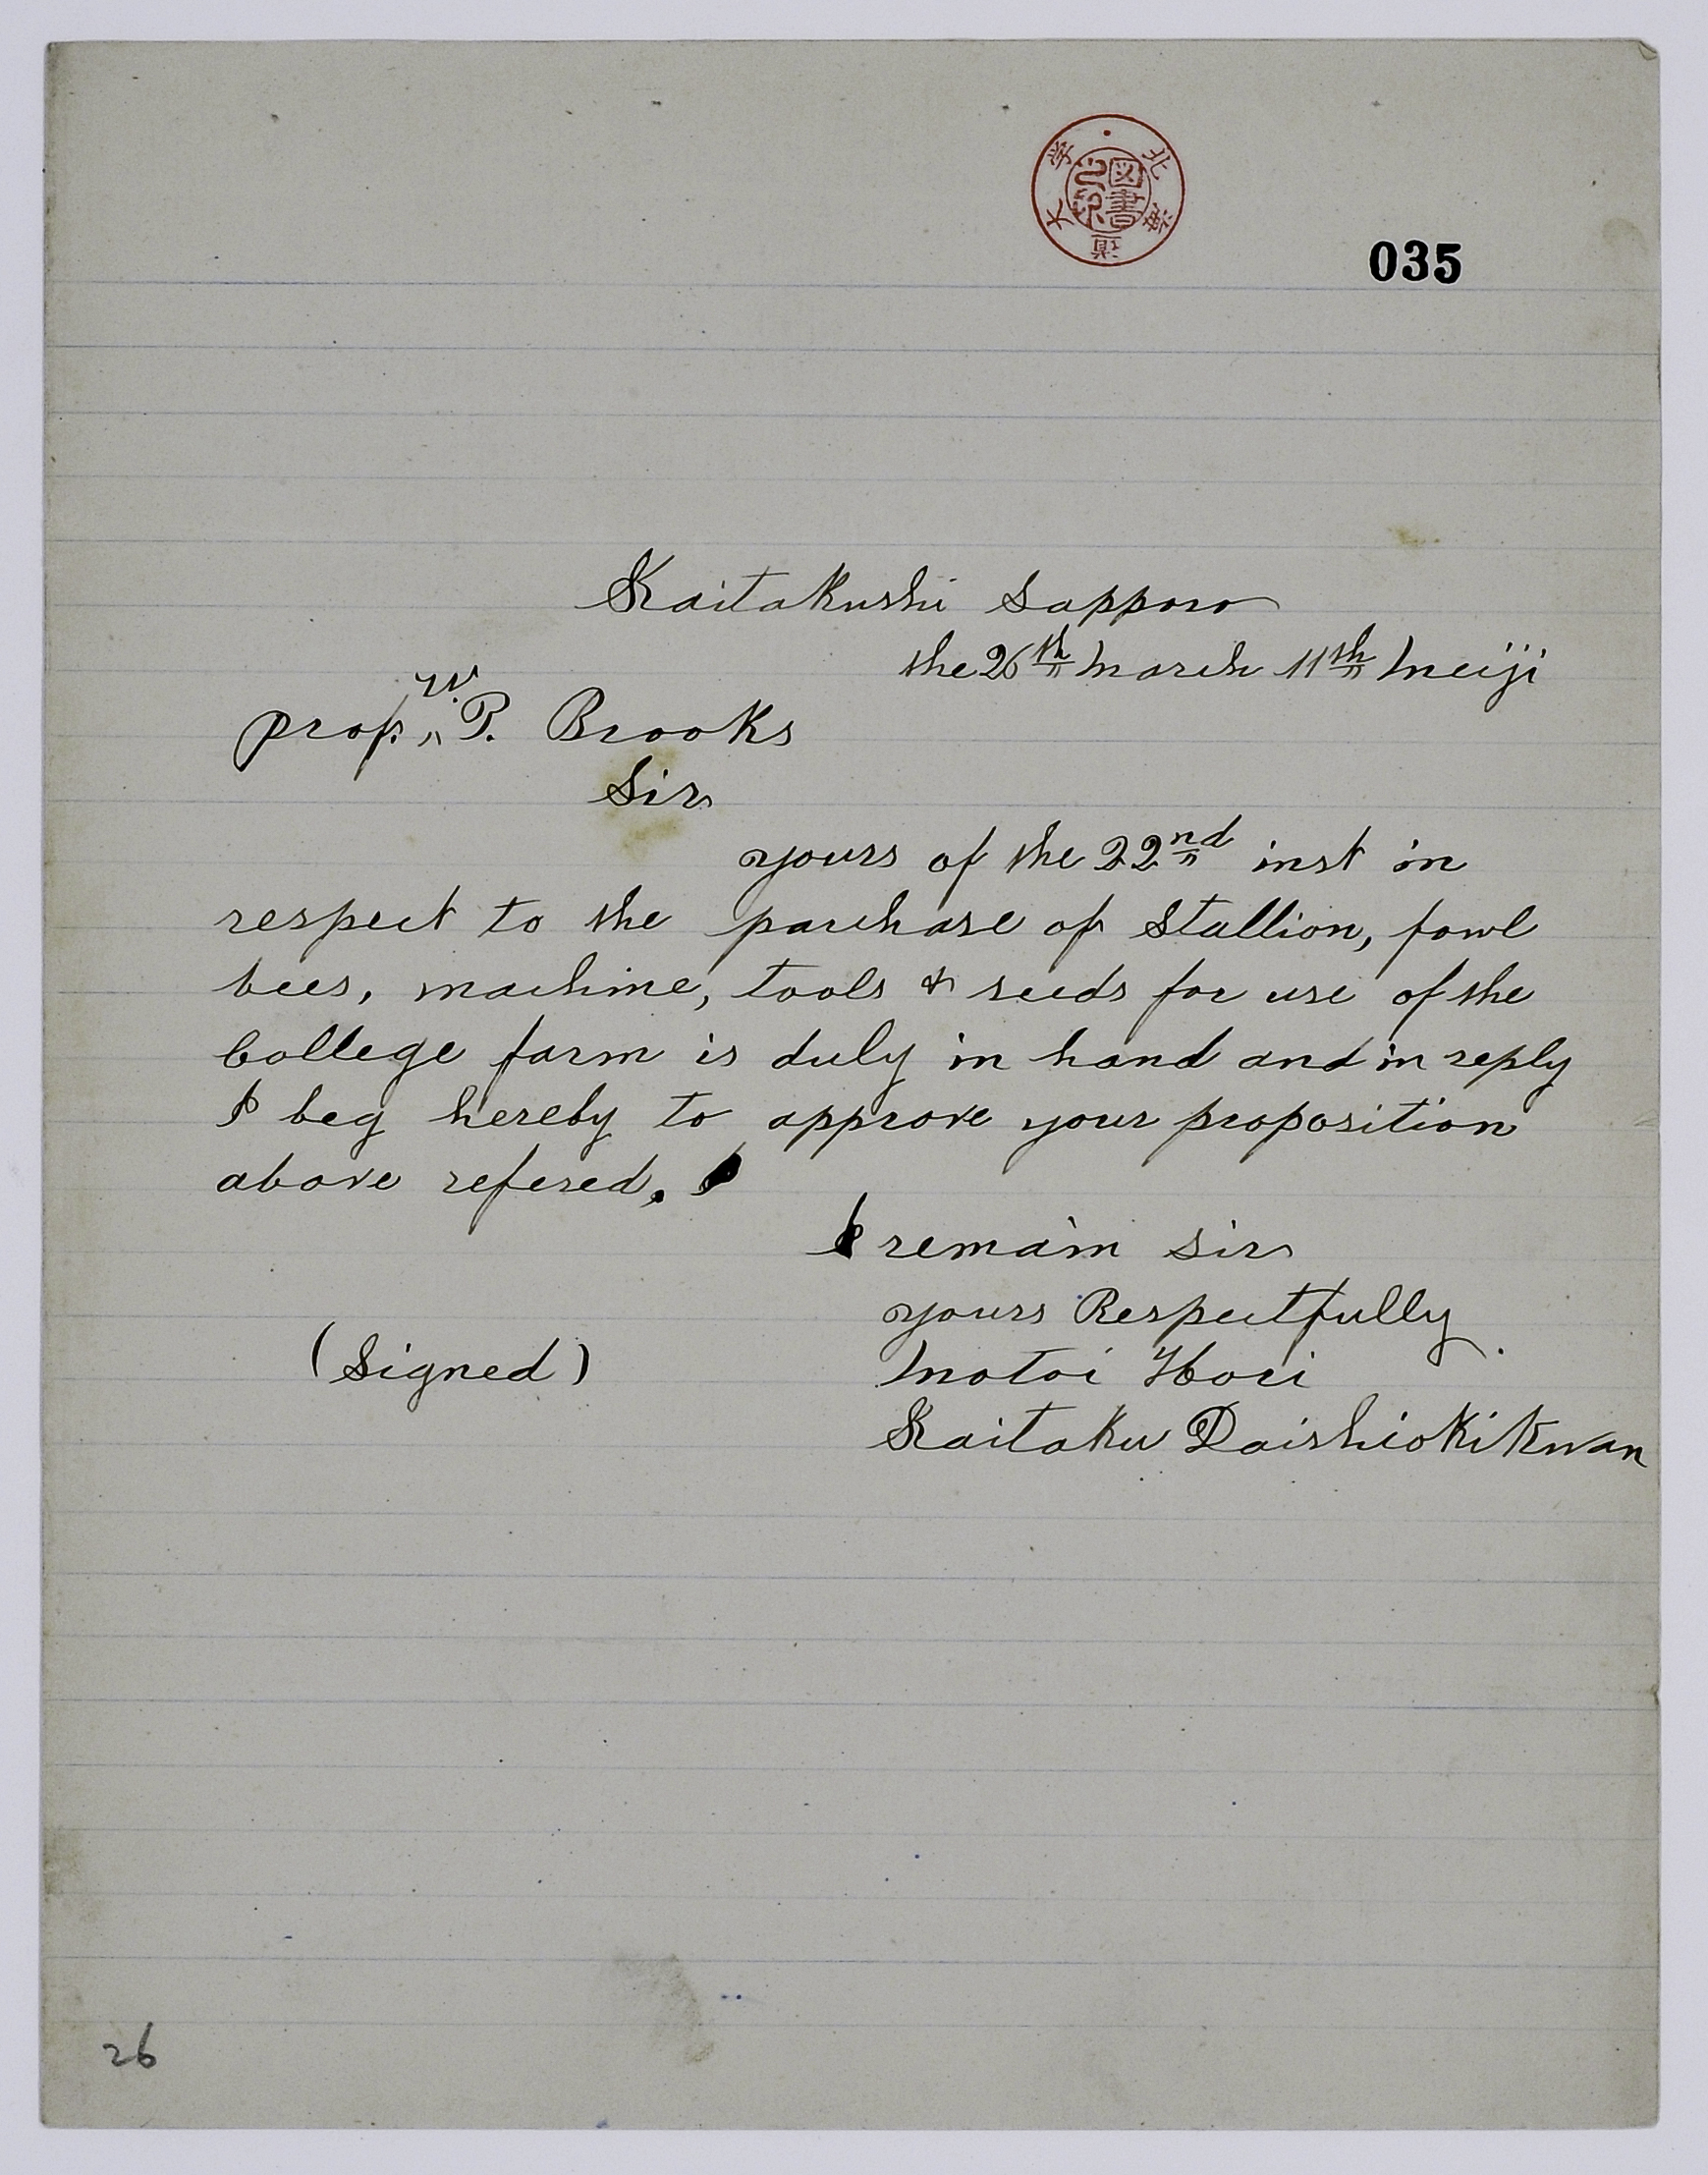 北海道大学
図書之印
035
Kaitakushi Sapporo
the 26th March 11th Meiji
W.
prof. P. Brooks
Sir
yours of the 22nd inst in
respect to the parchase of Stallion, fowl
bees, machine, tools & seeds for use of the
College farm is duly in hand and in reply
I beg hereby to approve your proposition
above refered.
I remain sir
yours Respectfully
(Signed) Motoi Hori
Kaitaku Daishiokikwan
26